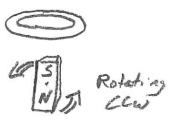 S
N
Rotating
CCW